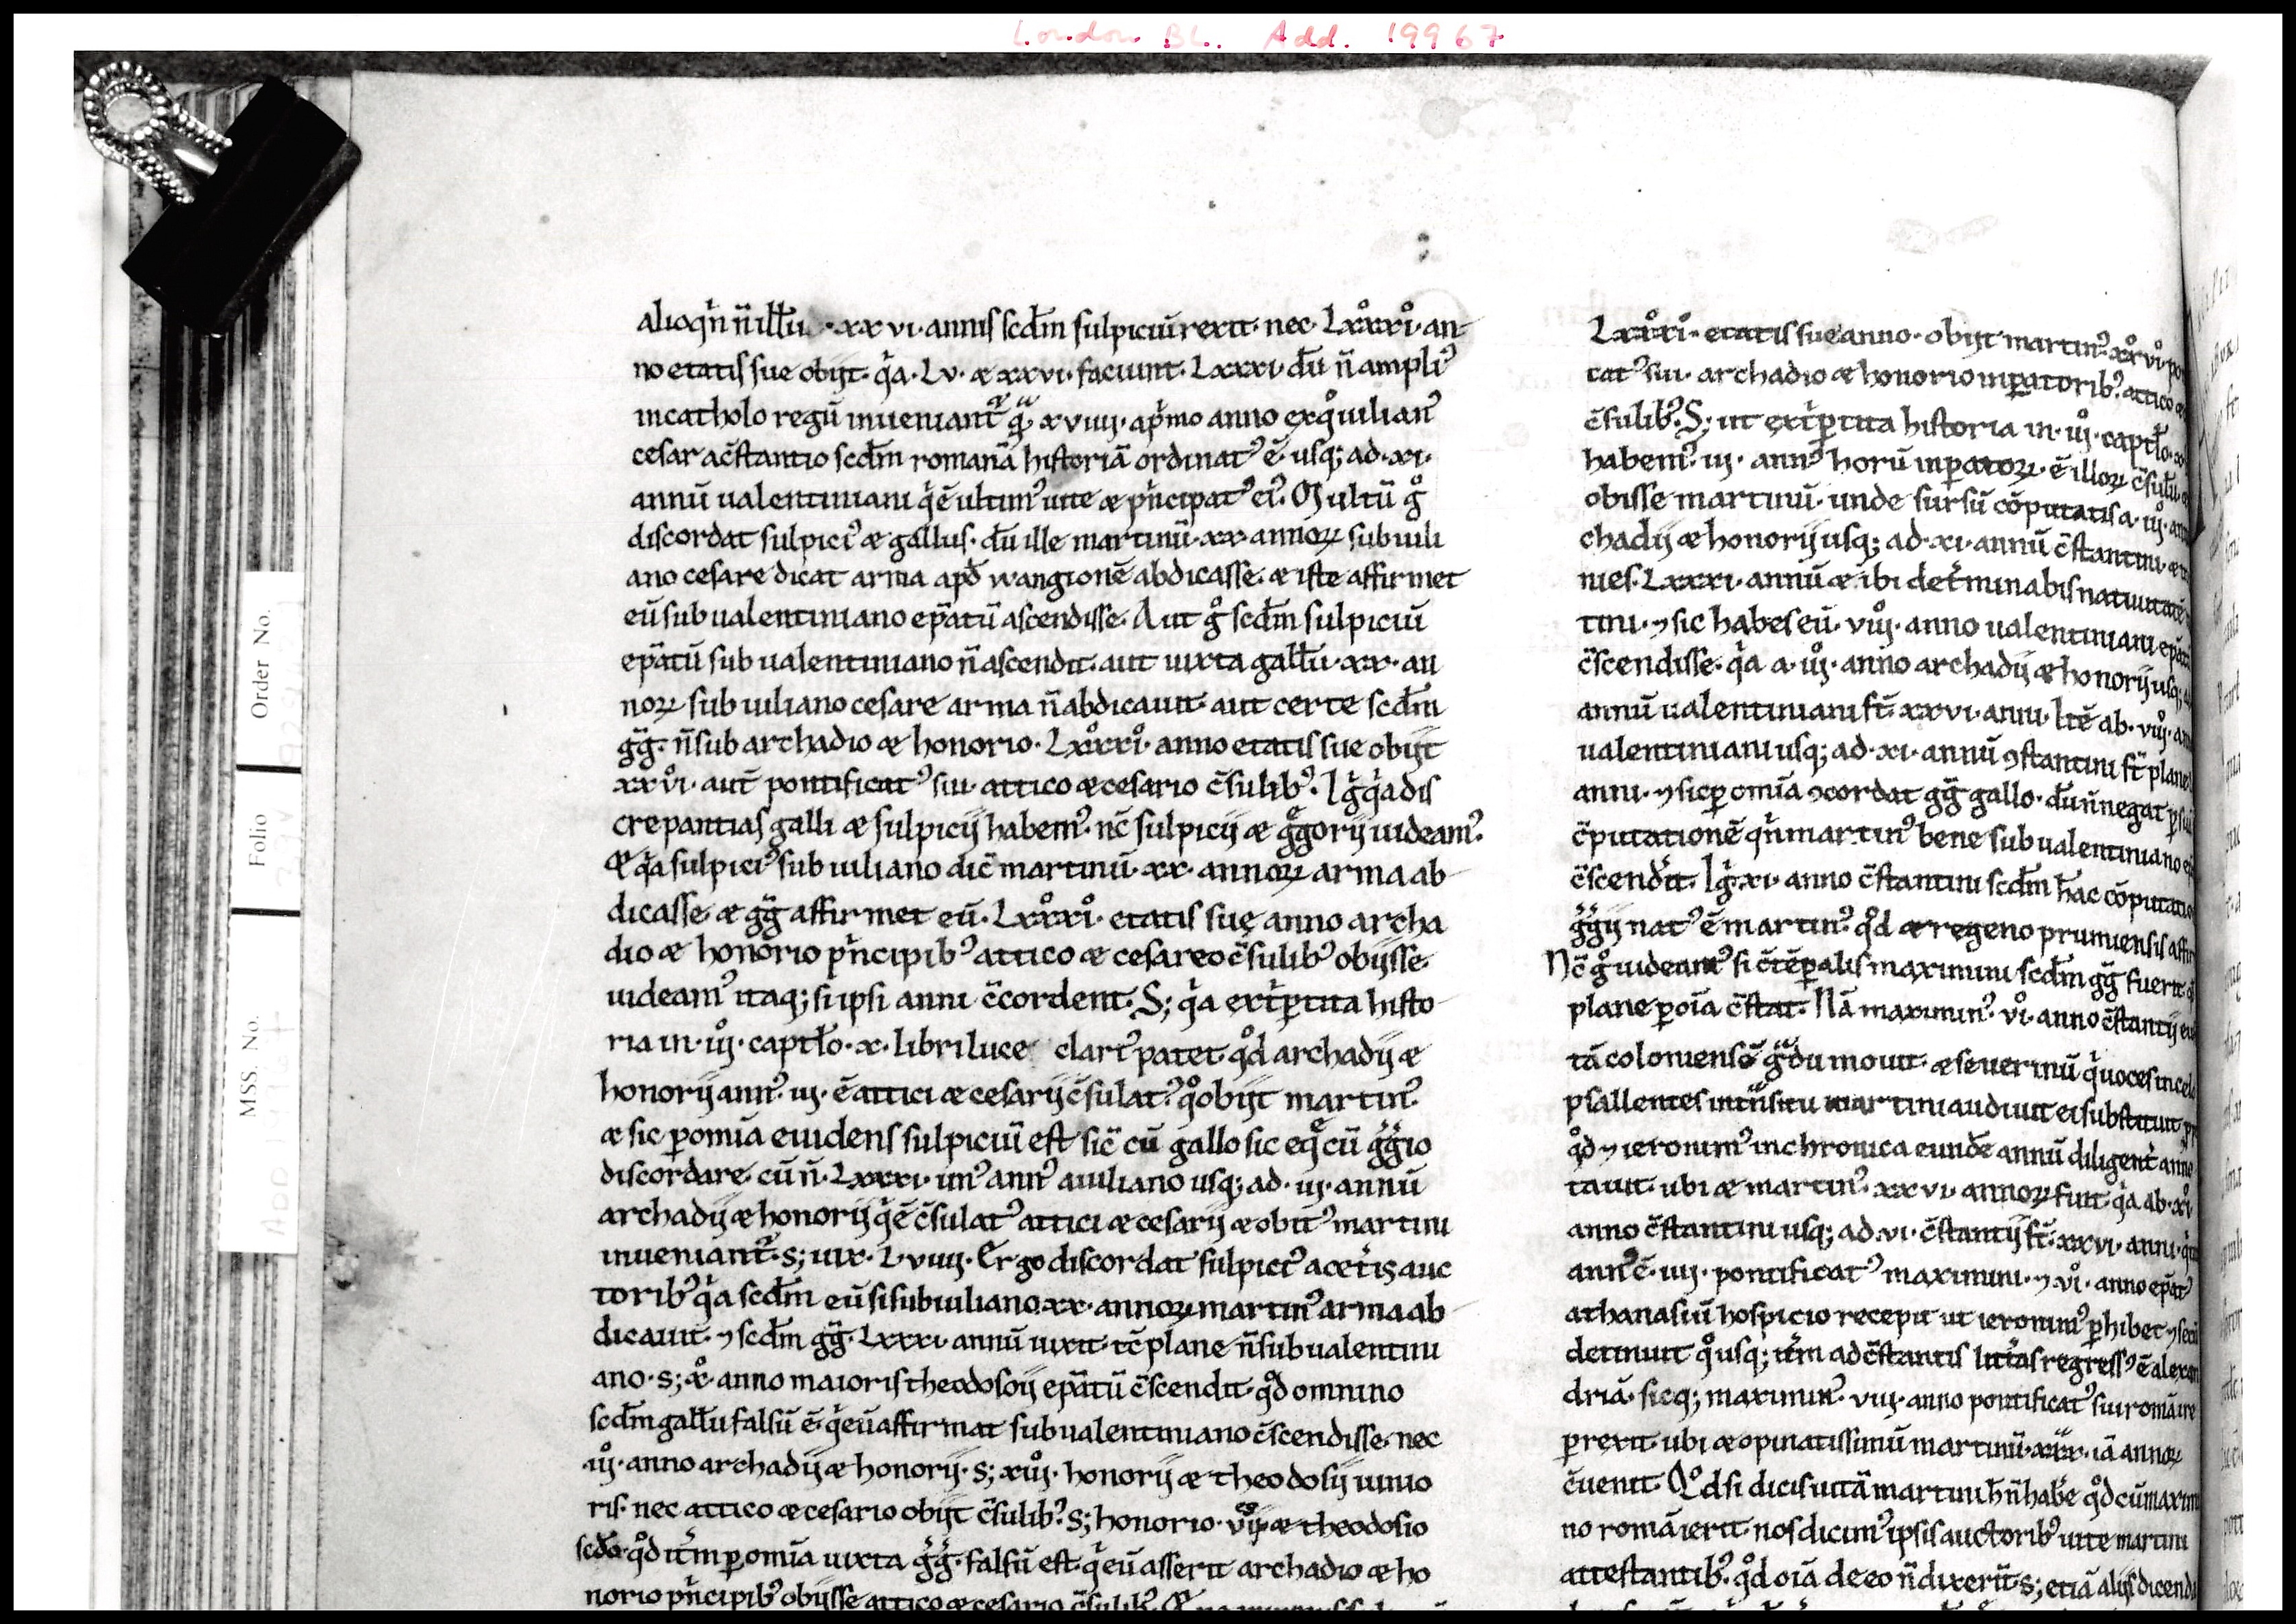 London BL. Add. 19967
Order No.
Folio
MSS. No.
alioqͥn n̄ illū · xx vi · annis scd̄m sulpiciū rexit · nec · Lxxxͦiͦ · an-
no etatis sue obijt · qͥa · Lv · æ xxvi · faciunt · Lxxxi · dū n̄ ampliꝰ
incatholo regū inueniant᷑ xviiij · apͥmo anno exqͦ iulianꝰ
cesar ac̄stantio scd̄m romanā historiā ordinatꝰ ē · usq; ad · xi ·
annū ualentiniani qͥ ē ultimꝰ uite æ pͥncipatꝰ eiꝰ. Multū gͦ
discordat sulpiciꝰ æ gallus · dū ille martinū · xx · annoꝝ sub iuli
ano cesare dicat arma apd̄ wangionē abdicasse · æ iste affirmet
eū sub ualentiniano ep̄atū ascendisse. Aut gͦ scd̄m sulpiciū
ep̄atū sub ualentiniano n̄ ascendit · aut iuxta gallū · xx · an
noꝝ sub iuliano cesare arma n̄ abdicauit · aut certe scd̄m
gg̅ · n̄ sub archadio æ honorio · Lxxxͦiͦ · anno etatis sue obijt
xxvͦiͦ · aut̄ pontificatꝰ sui · attico æ cesario c̄sulibꝰ. Igͥ qͥa dis
crepantias galli æ sulpicij habemꝰ · nc̄ sulpicij æ gͥgorij uideamꝰ.
Et qͥa sulpiciꝰ sub iuliano dic̄ martinū · xx · annoꝝ arma ab
dicasse · æ gg̅ affirmet eū · Lxxxͦiͦ · etatis suę anno archa
dio æ honorio pͥncipibꝰ attico æ cesareo c̄sulibꝰ obijsse ·
uideamꝰ itaq; si ipsi anni c̄cordent. S; qͥa extͥꝑtita histo
ria in · iijͦ · captl̄o · x · libri luce clariꝰ patet · qͦd archadij æ
honorij annꝰ iij · ē attici æ cesarij c̄sulatꝰ qͦ obijt martinꝰ.
æ sic ꝑ omīa euidens sulpiciū est sic̄ cū gallo sic eqͤ cū gͥgͥio
discordare · cū n̄ · Lxxxi · unꝰ annꝰ a iuliano usq; ad · iij · annū
archadij æ honorij qͥ ē c̄sulatꝰ attici æ cesarij æ obitꝰ martini
inueniant᷑ · s; uix · Lviiij · Ergo discordat sulpiciꝰ a cetͥis auc
toribꝰ qͥa scd̄m eū si sub iuliano · xx · annoꝝ martinꝰ arma ab
dicauit · ⁊ scd̄m gg̅ · Lxxxi · annū uixit · tc̄ plane n̄ sub ualentini
ano · s; xͦ · anno maioris theodosij ep̄atū c̄scendit · qͦd omnino
scd̄m gallū falsū ē · qͥ eū affirmat sub ualentiniano c̄scendisse · nec
iijͦ · anno archadij æ honorij · s; xiijͦ · honorij æ theodosij iunio
ris · nec attico æ cesario obijt c̄sulibꝰ. s; honorio · viij æ theodosio
scd̄o · qͦd itͥm ꝑ omīa iuxta gͥgͥ · falsū est · qͥ eū asserit archadio æ ho
norio pͥncipibꝰ obijsse attico æ cesario c̄sulibꝰ.
Lxxxͦiͦ · etatis sue anno · obijt martinꝰ xxͦvͦiͦ ·
catꝰ sui · archadio æ honorio inꝑatoribꝰ · attico
c̄sulibꝰ. S; ut extͥꝑtita historia in · iijͦ · captl̄o ·
habemꝰ · iij · annꝰ horū inꝑatoꝝ · ē illoꝝ c̄sulū
obisse martinū · unde sursū cōputatis a · iijͦ ·
chadij æ honorij usq; ad · xi · annū c̄stantini ·
nies · Lxxxi · annū æ ibi detͥminabis natiuitatē
tini · ⁊ sic habes eū · viijͦ · anno ualentiniani
c̄scendisse · qͥa a · iijͦ · anno archadij æ honorij usq;
annū ualentiniani st̄ · xxvi · anni · Itē ab · viijͦ ·
ualentiniani usq; ad · xi · annū ꝯstantini st̄ plane
anni · ⁊ sic ꝑ omīa ꝯcordat gg̅ gallo · dū n̄ negat
c̄putationē qn̄ martinꝰ bene sub ualentiniano
c̄scendͥit. Igͥ xi · anno c̄stantini scd̄m hac cōputatio
gͥgͥij natꝰ ē martinꝰ. qͦd æ regeno prumiensis
Nc̄ gͦ uideamꝰ si c̄tēꝑalis maximini scd̄m gg̅ fuerit
plane ꝑ oīa c̄stat. Nā maximinꝰ. vͦiͦ · anno c̄stantij
tā coloniensē gͣdu mouit · æ seuerinū qͥ uoces in celo
psallentes in tͣnsitu martini audiuit ei substituit
qͦd ⁊ ieronimꝰ in chronica eundē annū diligent̄
tauit · ubi æ martinꝰ · xxvi · annoꝝ fuit · qͥa ab · xͦiͦ ·
anno c̄stantini usq; ad · vi · c̄stantij st̄ · xxvi · anni ·
annꝰ ē · iiij · pontificatꝰ maximini · ⁊ vͦiͦ · anno ep̄atꝰ
athanasiū hospicio recepit ut ieronimꝰ ꝑhibet
detinuit qͦusq; itͥm ad c̄stantis litt̄as regressꝰ ē alexan
driā · sicq; maximinꝰ · viij · anno pontificatꝰ sui romā ire
ꝑrexit · ubi æ opinatissimū martinū · xxx · iā annoꝝ
c̄uenit. Qͦdsi dicis uitā martini h̄ n̄ habē qͦd cū maximi
no romā ierit · nos dicimꝰ ipsis auctoribꝰ uite martini
attestantibꝰ · qͦd oīā de eo n̄ dixerūt · s; etiā alijs